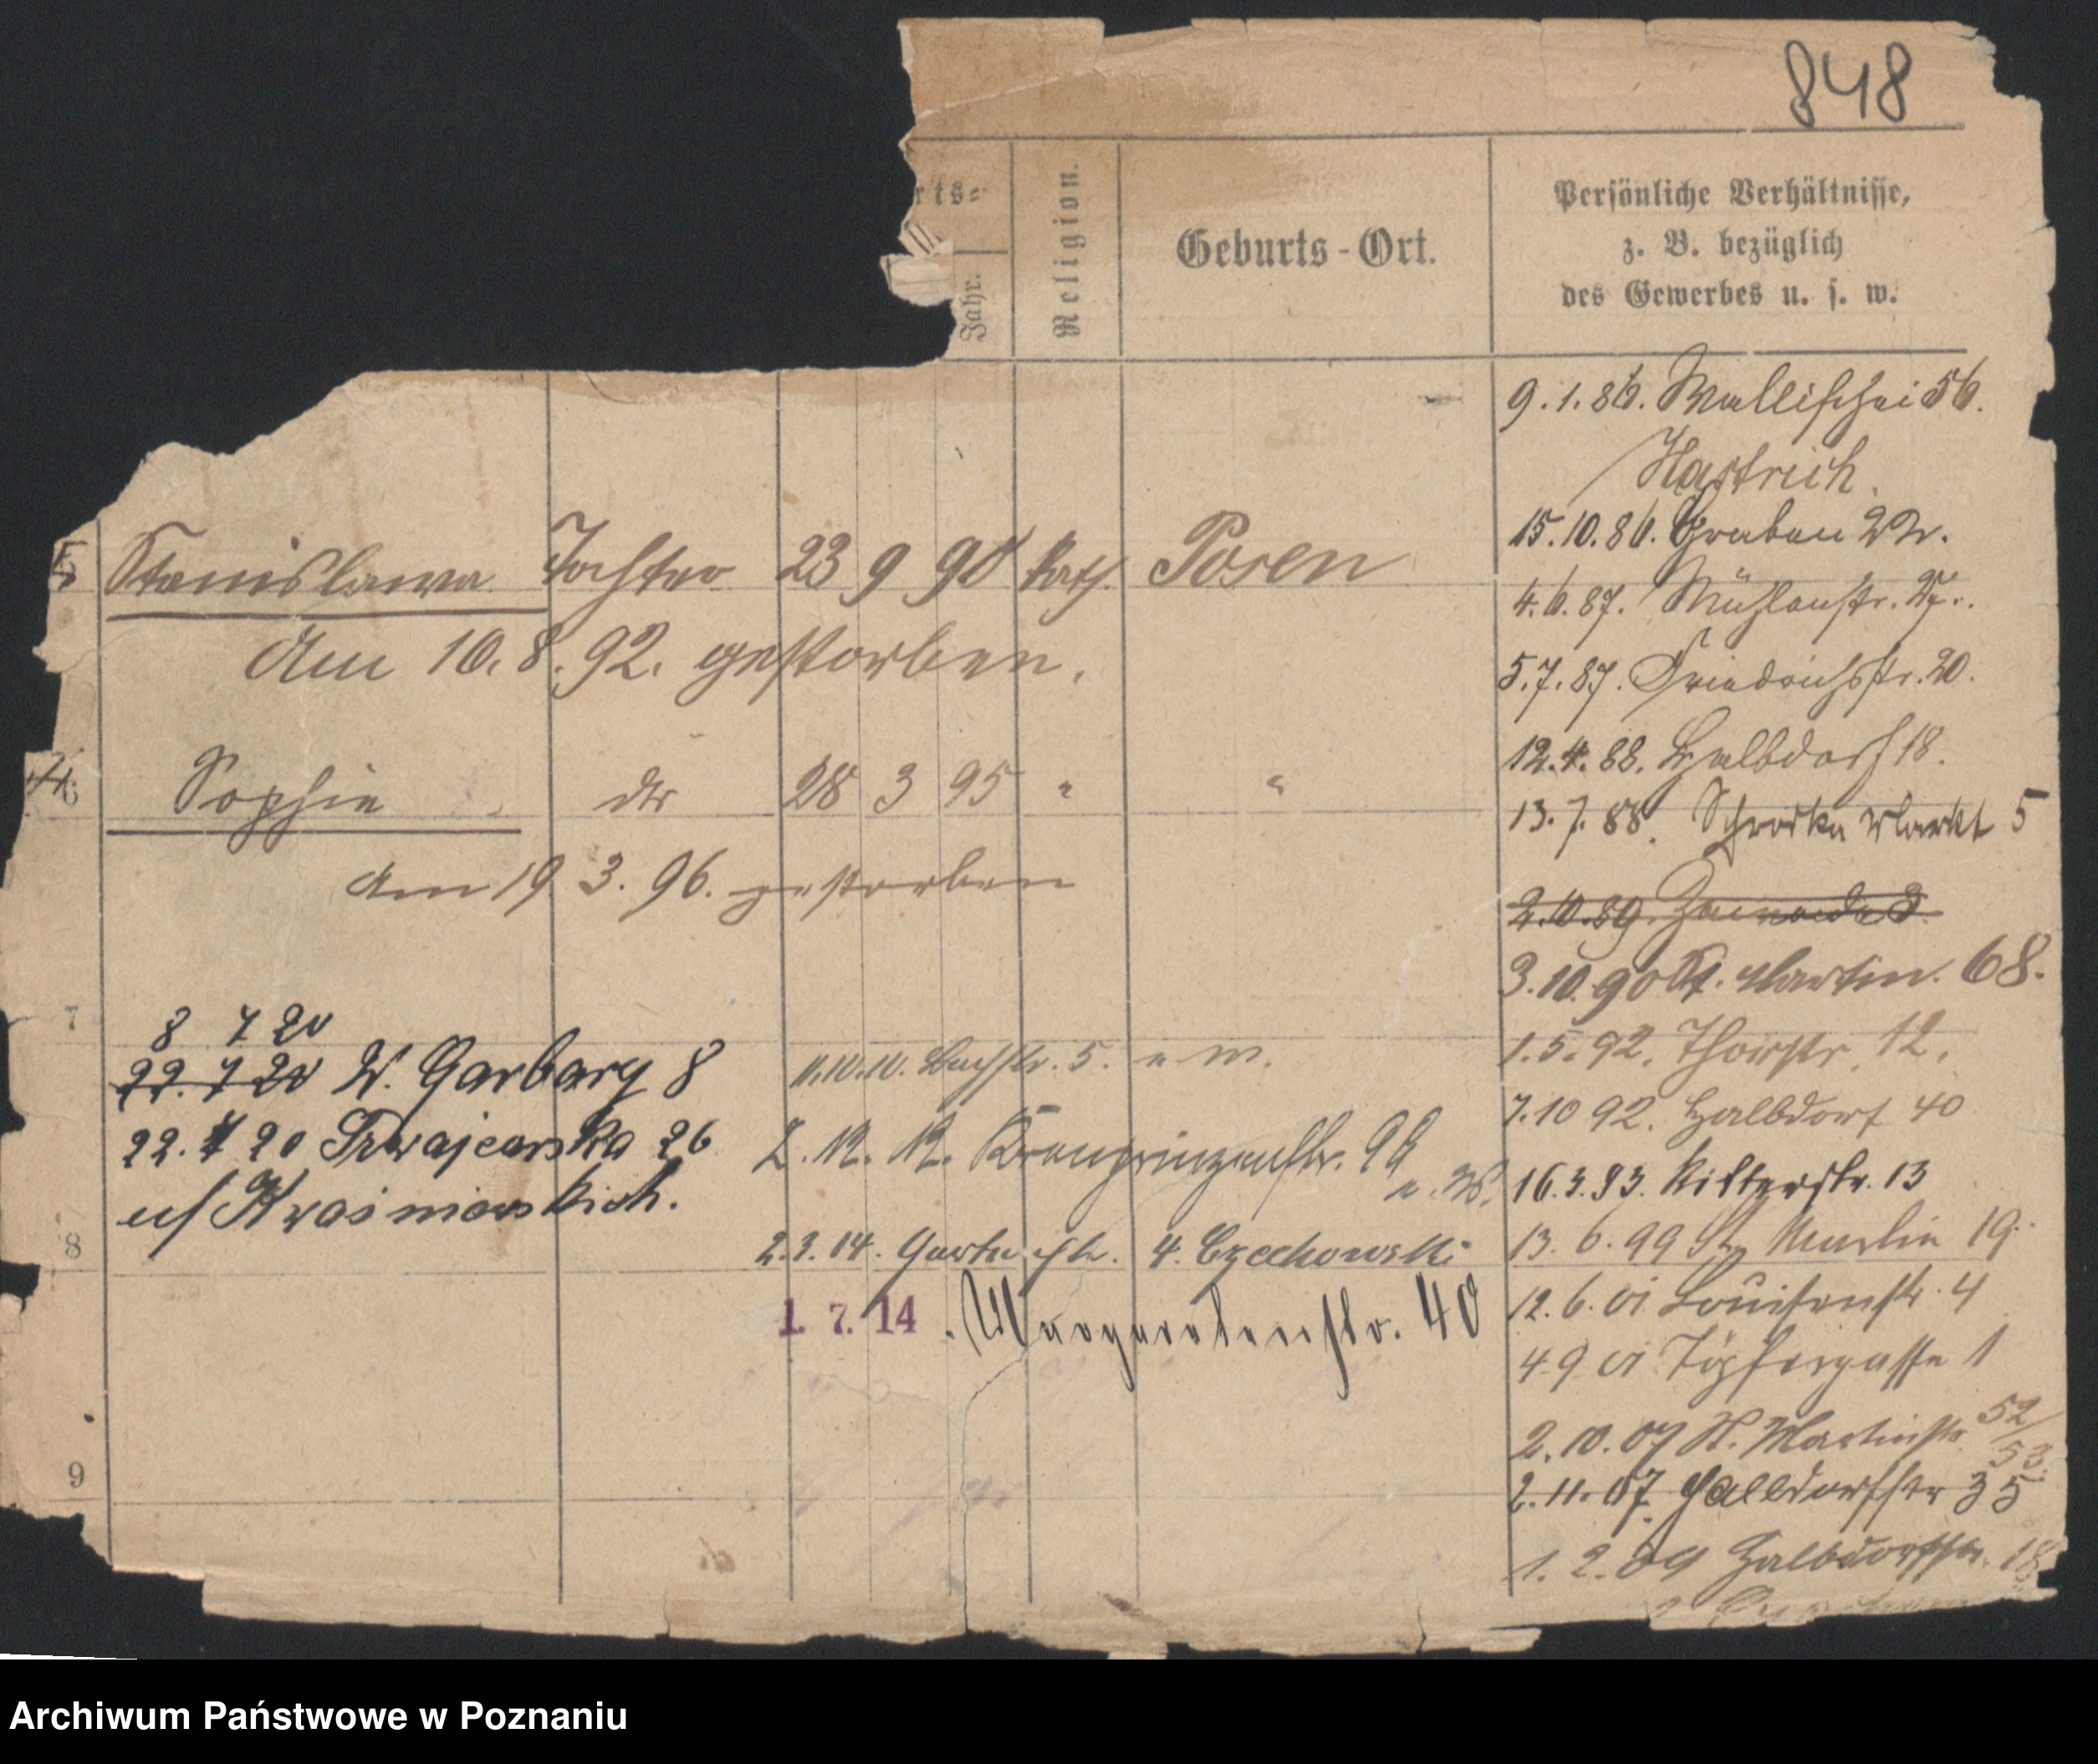 848
rts=
Jahr.
Religion.
Geburts-Ort.
Persönliche Verhältnisse,
z. B. bezüglich
des Gewerbes u. s. w.
5 Stanislawa Tochter 23 9 90 kath. Posen
Am 10. 8. 92. gestorben.
Sophie dto 28 3 95 " "
Am 19. 3. 96. gestorben
7
8 7 20
22. 7 20 W. Garbary 8
22. 7 20 Szwajcarska 26
u/ Kraśniewskich.
8
9
11.10.10. Bachstr. 5. u. W.
2. 12. 12. Kronprinzenstr. 99
u. W.
2.3.14. Gartenstr. 4. Czechowski
1. 7. 14. Margaretenstr. 40
9.1.86. Wallischei 56.
15.10.86. Graben
4.6.87. Mühlenstr.
5.7.87. Friedrichstr. 20.
12.4.88. Halbdorf 18.
13.7.88. Schrodka Markt 5
2.10.89.
3.10.90 St. Martin. 68.
1.5.92. Thorstr. 12.
7.10 92. Halbdorf 40
16.3.93. Ritterstr. 13
13. 6. 99 St. Martin 19.
12. 6. 01 Louisenstr. 4
4 9 01 Töpfergasse 1
2. 10. 07 St. Martinstr. 52/53.
2. 11. 07. Halbdorfstr 35
1. 2. 09 Halbdorfstr. 18
Archiwum Państwowe w Poznaniu